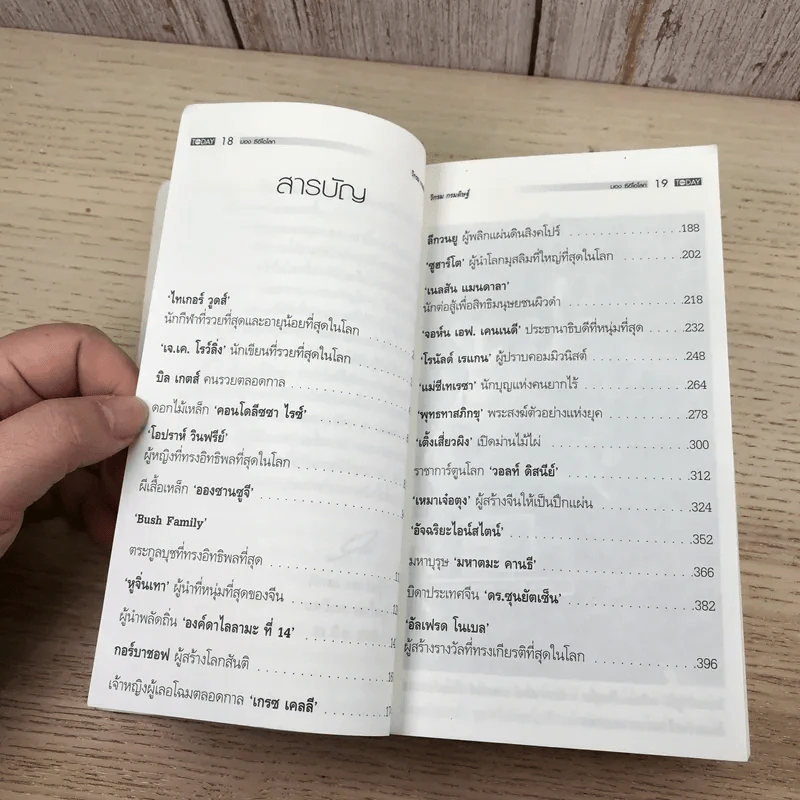 TODAY 18 มอง ซีอีโอโลก
สารบัญ
'ไทเกอร์ วูดส์'
นักกีฬาที่รวยที่สุดและอายุน้อยที่สุดในโลก
'เจ.เค. โรว์ลิ่ง' นักเขียนที่รวยที่สุดในโลก
บิล เกตส์ คนรวยตลอดกาล
ดอกไม้เหล็ก 'คอนโดลีซซา ไรซ์'
'โอปราห์ วินฟรีย์'
ผู้หญิงที่ทรงอิทธิพลที่สุดในโลก
ผีเสื้อเหล็ก 'อองซานซูจี'
'Bush Family'
ตระกูลบุชที่ทรงอิทธิพลที่สุด
'หูจิ่นเทา' ผู้นำที่หนุ่มที่สุดของจีน
ผู้นำพลัดถิ่น 'องค์ดาไลลามะ ที่ 14'
กอร์บาชอฟ ผู้สร้างโลกสันติ
เจ้าหญิงผู้เลอโฉมตลอดกาล 'เกรซ เคลลี่'
วิกรม กรมดิษฐ์ มอง ซีอีโอโลก 19 TODAY
ลีกวนยู ผู้พลิกแผ่นดินสิงคโปร์ 188
'ซูฮาร์โต' ผู้นำโลกมุสลิมที่ใหญ่ที่สุดในโลก 202
'เนลสัน แมนดาลา'
นักต่อสู้เพื่อสิทธิมนุษยชนผิวดำ 218
'จอห์น เอฟ. เคนเนดี' ประธานาธิบดีที่หนุ่มที่สุด 232
'โรนัลด์ เรแกน' ผู้ปราบคอมมิวนิสต์ 248
'แม่ชีเทเรซา' นักบุญแห่งคนยากไร้ 264
'พุทธทาสภิกขุ' พระสงฆ์ตัวอย่างแห่งยุค 278
'เติ้งเสี่ยวผิง' เปิดม่านไม้ไผ่ 300
ราชาการ์ตูนโลก 'วอลท์ ดิสนีย์' 312
'เหมาเจ๋อตุง' ผู้สร้างจีนให้เป็นปึกแผ่น 324
'อัจฉริยะไอน์สไตน์' 352
มหาบุรุษ 'มหาตมะ คานธี' 366
บิดาประเทศจีน 'ดร.ซุนยัตเซ็น' 382
'อัลเฟรด โนเบล'
ผู้สร้างรางวัลที่ทรงเกียรติที่สุดในโลก 396